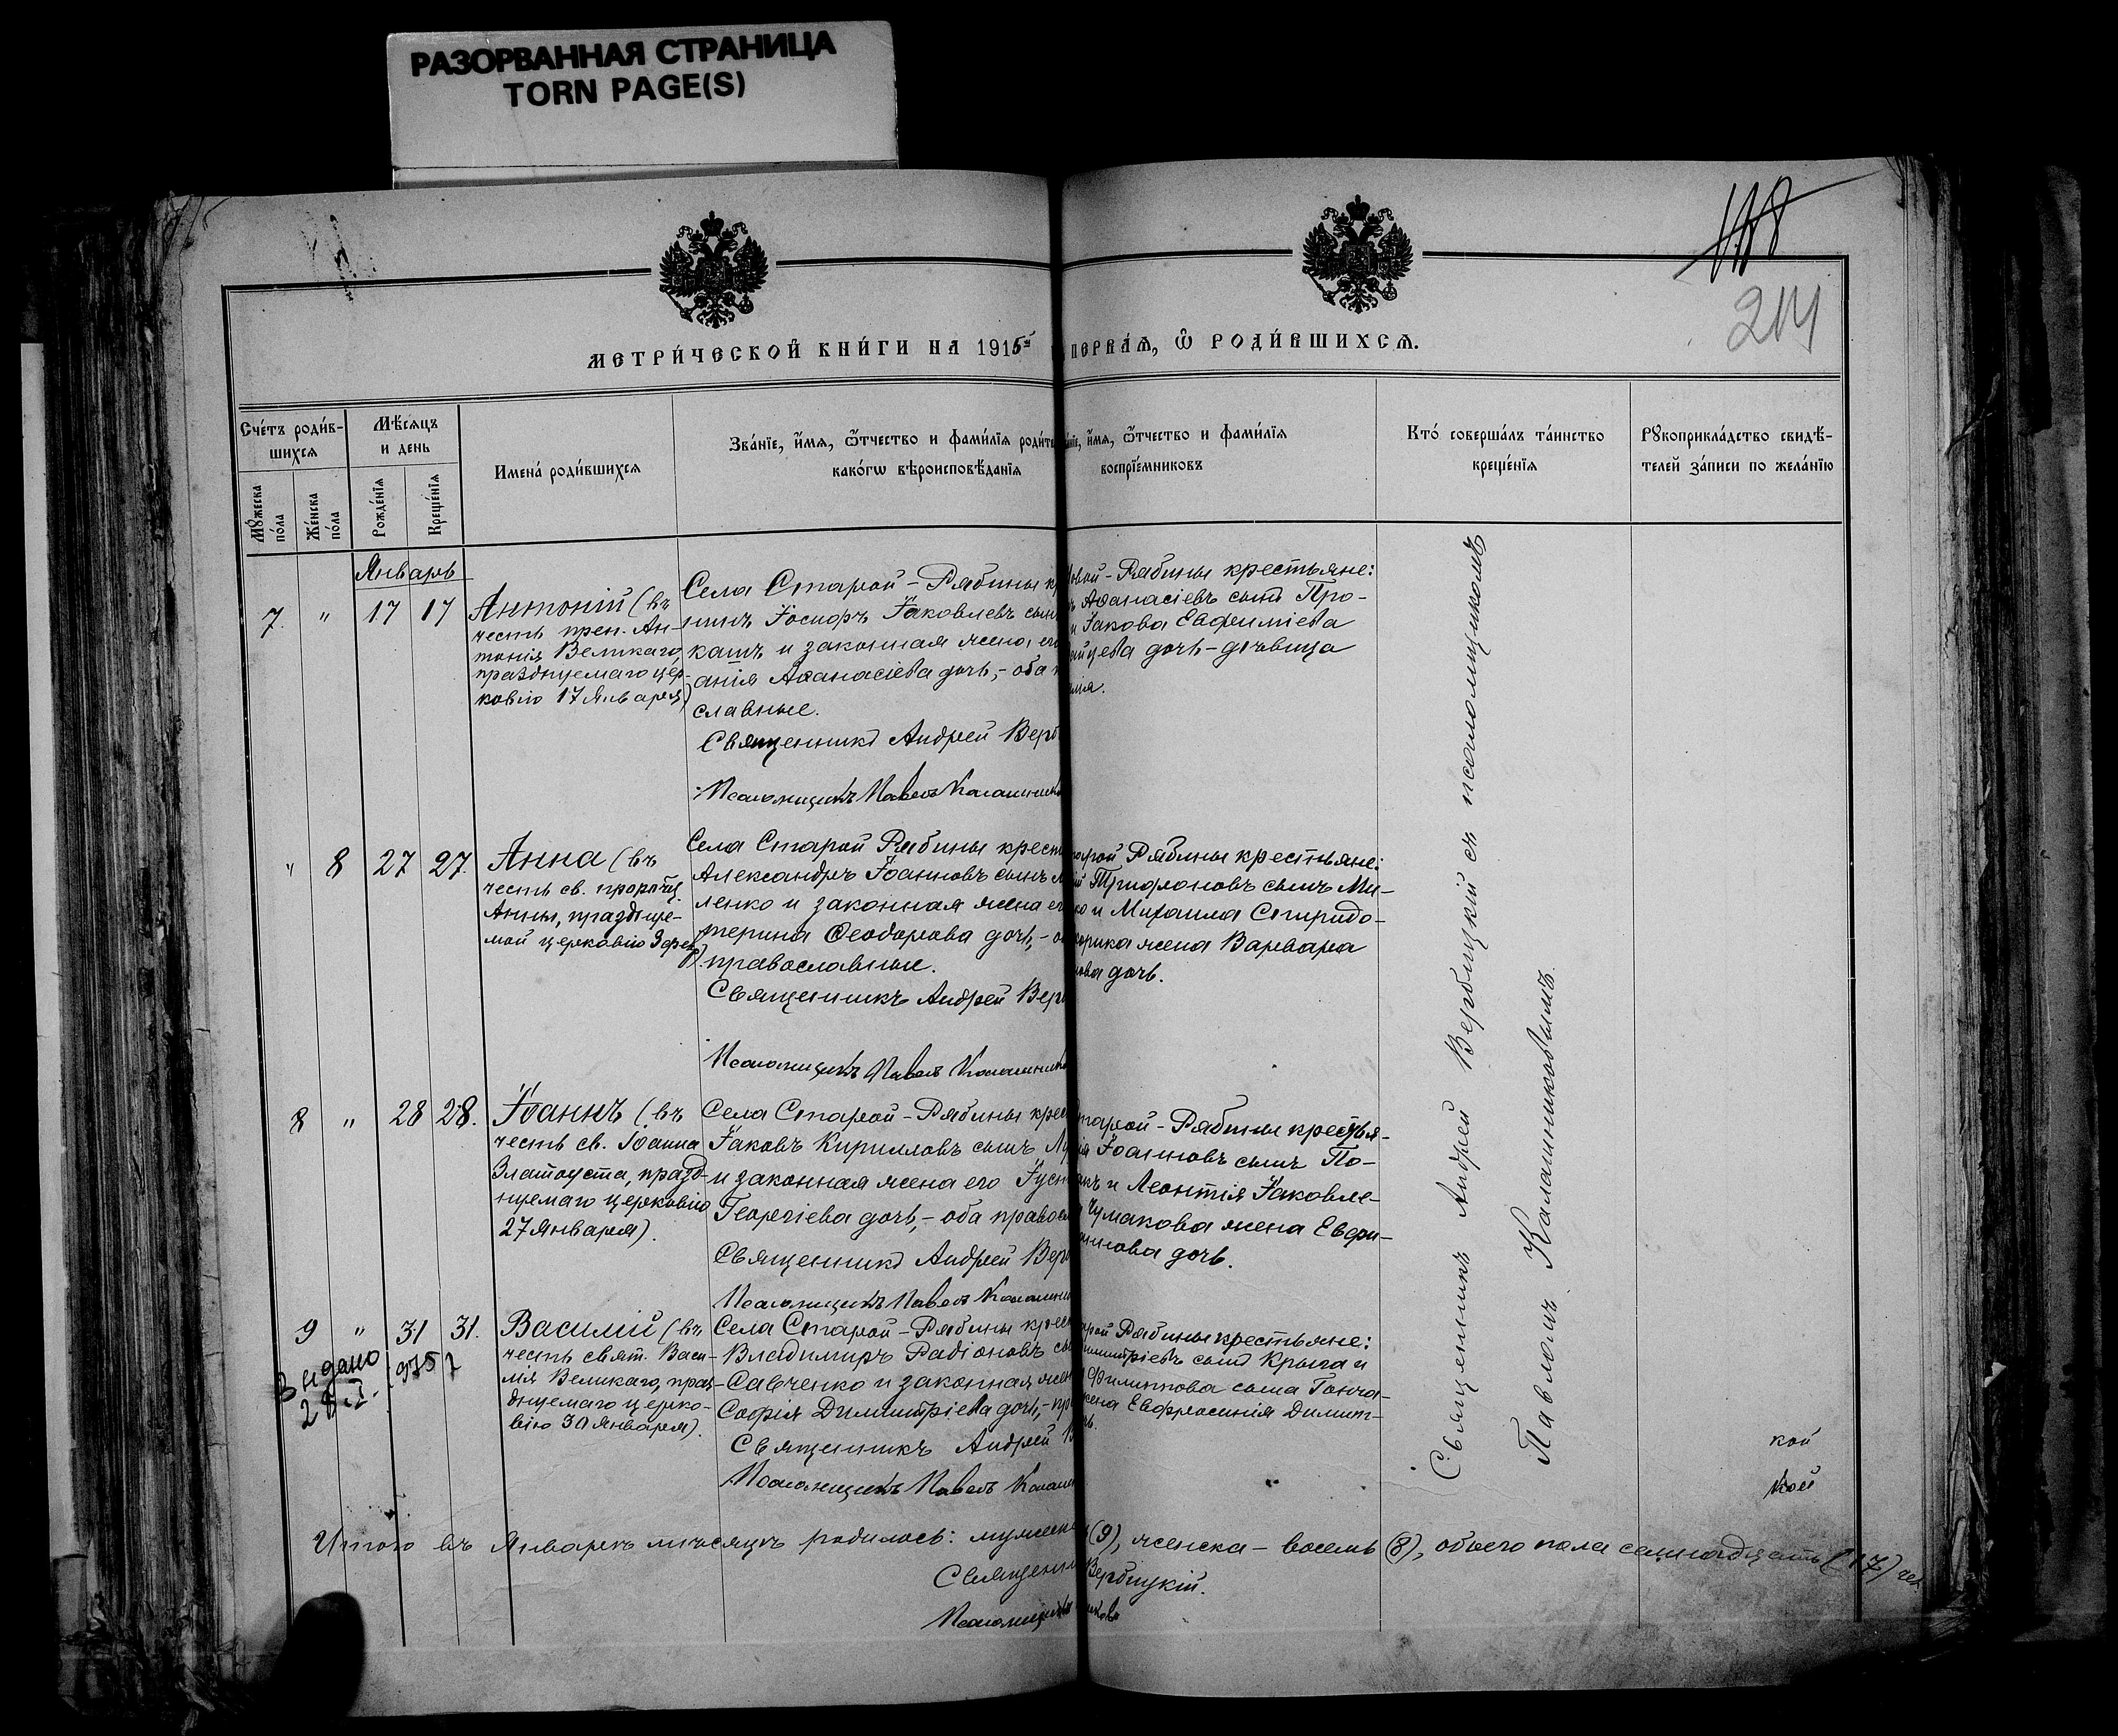 РАЗОРВАННАЯ СТРАНИЦА
TORN PAGE(S)
188
214
МЕТРИ́ЧЕСКОЙ КНИ́ГИ НА 1915й
ПЕРВАѦ, Ѿ РОДИ́ВШИХСѦ.
Сче́тъ роди́в-
шихся
Мѣ́сяцъ
и день
Му́жеска
по́ла
Же́нска
по́ла
Рожде́нїя
Креще́нїя
Имена́ роди́вшихся
Зва́нїе, и́мя, ѻ́тчество и фами́лїя роди́те
како́гѡ вѣроисповѣ́данїя
анїе, и́мя, ѻ́тчество и фами́лїя
воспрїе́мниковъ
Кто́ соверша́лъ та́инство
креще́нїя
Рꙋкоприкла́дство свидѣ́-
телей за́писи по жела́нїю
Январь
7. " 17 17
Антоній (въ
честь преп. Ан-
тонія Великаго,
празднуемаго цер-
ковію 17 Января)
Села Старой-Рябины кр
Іосифъ Іаковлевъ сынъ
и законная жена его
анія Аѳанасіева дочь,- оба п
славные.
Священникъ Андрей Верб
Псаломщикъ Павелъ Калашнико
овой-Рябины крестьяне:
ъ Аѳанасіевъ сынъ Про-
и Іакова Евфиміева
дочь-дѣвица
" 8 27 27.
Анна (въ
честь св. пророчиц.
Анны, праздцуе-
мой церковію 9 фев
Села Старой Рябины крест
Александръ Іоанновъ сынъ М
ленко и законная жена ег
терина Ѳеодорова дочь,- о
православные.
Священникъ Андрей Верб
Псаломщикъ Павелъ Калашнико
тарой Рябины крестьяне:
ій Трифоновъ сынъ Ми-
ко и Михаила Спиридо-
жена Варвара
ова дочь.
8 " 28 28.
Іоаннъ (въ
честь св. Іоанна
Златоуста, празд-
нуемаго церковію
27 Января).
Села Старой-Рябины крес
Іаковъ Кирилловъ сынъ
и законная жена его Іуст
Георгіева дочь,- оба правосл
Священникъ Андрей Верб
Псаломщикъ Павелъ Калашни
тарой-Рябины крестья-
ія Іоанновъ сынъ По-
и Леонтія Іаковле-
Чумакова жена Евфи-
аннова дочь.
9 " 31 31.
Выдано
28.I. 1957
Василій (въ
честь свят. Васи-
лія Великаго, праз-
днуемаго церко-
вію 30 Января).
Села Старой-Рябины крест
Владимиръ Радіоновъ сы
Савченко и законная жен
Софія Димитріева дочь,- пр
Священникъ Андрей В
Псаломщикъ Павелъ Калаш
арой Рябины крестьяне:
имитріевъ сынъ Крыга и
Филиппова сына Гонча-
жена Евфросинія Димит-
чь.
Священникъ Андрей Вербицкій съ псаломщикомъ
Павломъ Калашниковымъ.
кой
кой
Итого въ Январѣ мѣсяцѣ родилось: мужеска (9), женска - восемь (8), обоего пола семнадцать (17) чел
Священни Вербицкій.
Псаломщикъ иковъ